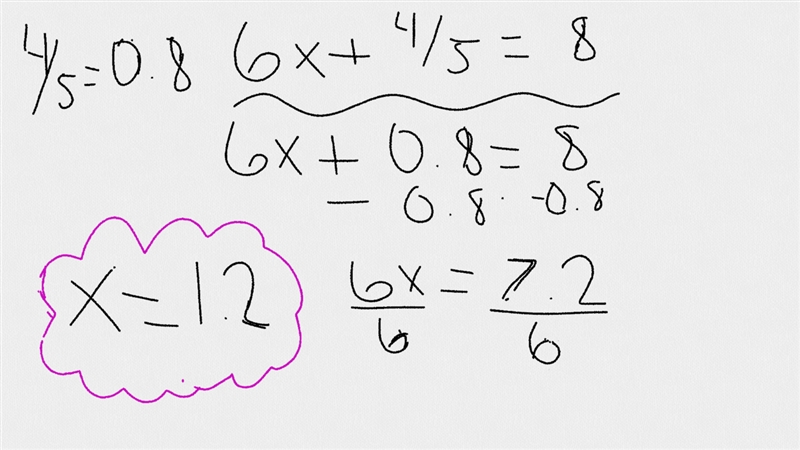 4/5=0.8
6x+4/5=8
6x+0.8=8
-0.8 -0.8
6x/6=7.2/6
x=1.2